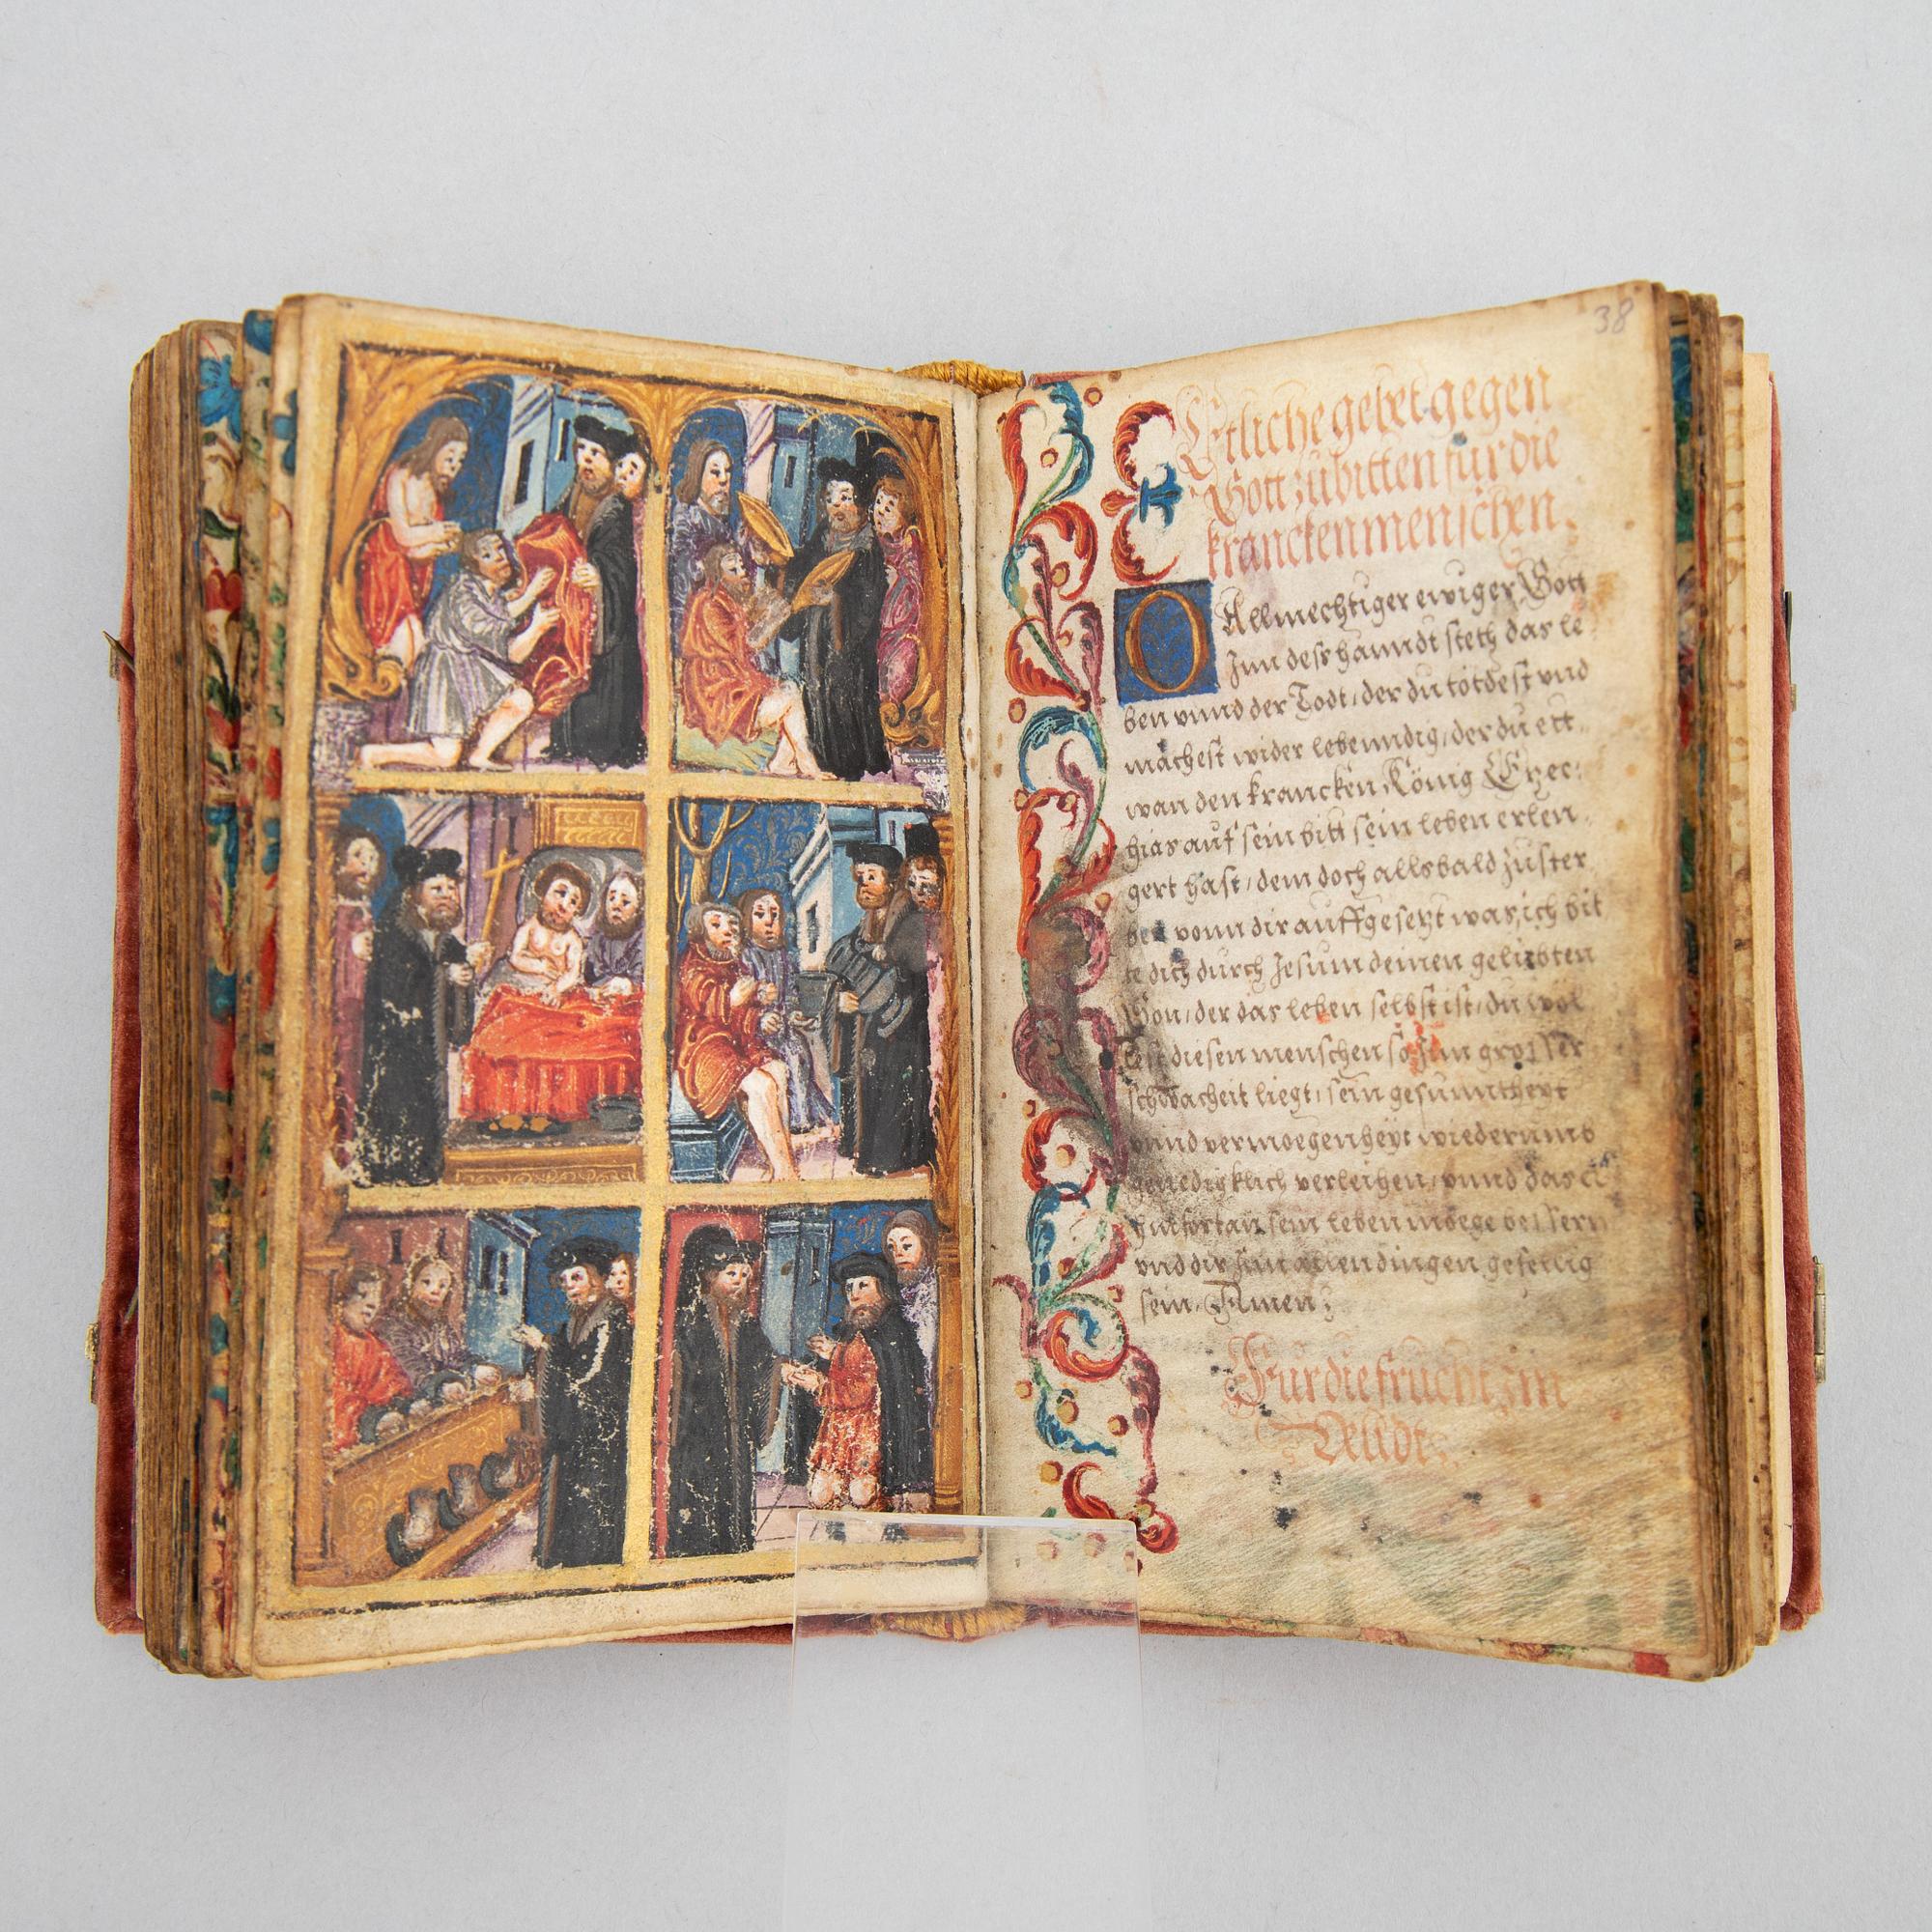 38
Etliche gebet gegen
Gott zubitten fur die
krancken menschen.
O Allmechtiger ewiger Gott
Jnn dess hanndt steth das le
ben vnnd der Todt, der du tötdest vnd
machest wider lebenndig, der du ett
wan den krancken König Ezec:
hias auf sein bitt sein leben erlen
gert hast, dem doch allsbald zuster
ben vonn dir auffgesetzt war, ich bit
te dich durch Jesum deinen geliebten
Son, der das leben selbst ist, du wöl
lest diesen menschen so Jnn grosser
schwacheit liegt, sein gesunntheyt
vnnd vermoegenheyt wiederumb
genedigklich verleihen, vnnd das er
hinfortan sein leben moege bessern
vnd dir Jnn allen dingen gefellig
sein. Amen;
Fur die frucht, in
Velldt.